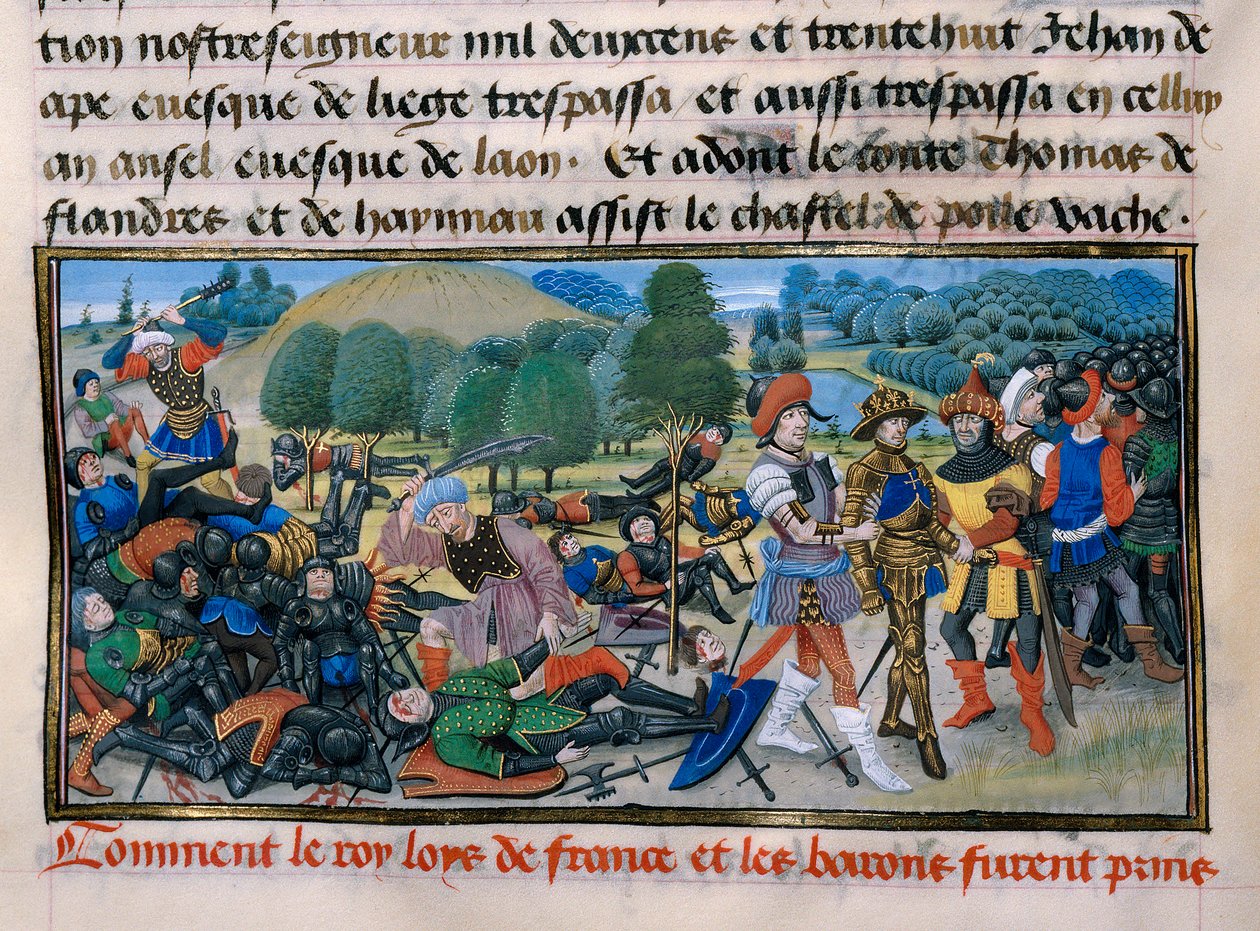 tion nostreseigneur mil deuxcens et trentehuit Jehan de
ape euesque de liege trespassa / et aussi trespassa en celluy
an ansel / euesque de laon . Et adont le conte Thomas de
flandres et de haynnau assist le chastel de poile vache .
Comment le roy loys de france et les barons furent prins